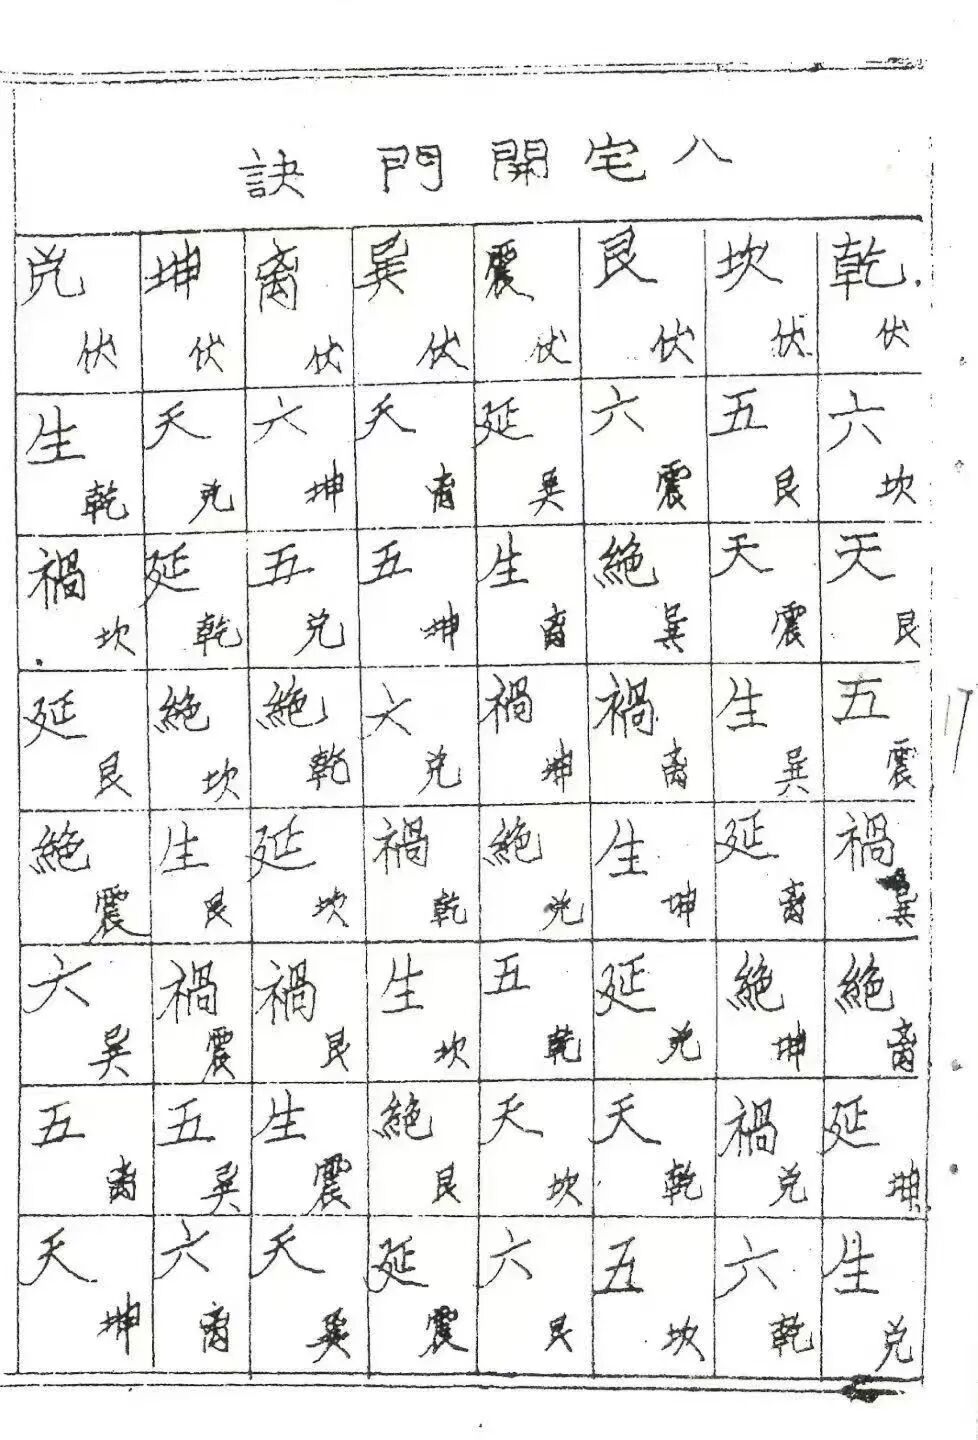 八宅開門訣
乾伏 六坎 天艮 五震 禍巽 絶离 延坤 生兑
坎伏 五艮 天震 生巽 延离 絶坤 禍兑 六乾
艮伏 六震 絶巽 禍离 生坤 延兑 天乾 五坎
震伏 延巽 生离 禍坤 絶兑 五乾 天坎 六艮
巽伏 天离 五坤 六兑 禍乾 生坎 絶艮 延震
离伏 六坤 五兑 絶乾 延坎 禍艮 生震 天巽
坤伏 天兑 延乾 絶坎 生艮 禍震 五巽 六离
兑伏 生乾 禍坎 延艮 絶震 六巽 五离 天坤
17